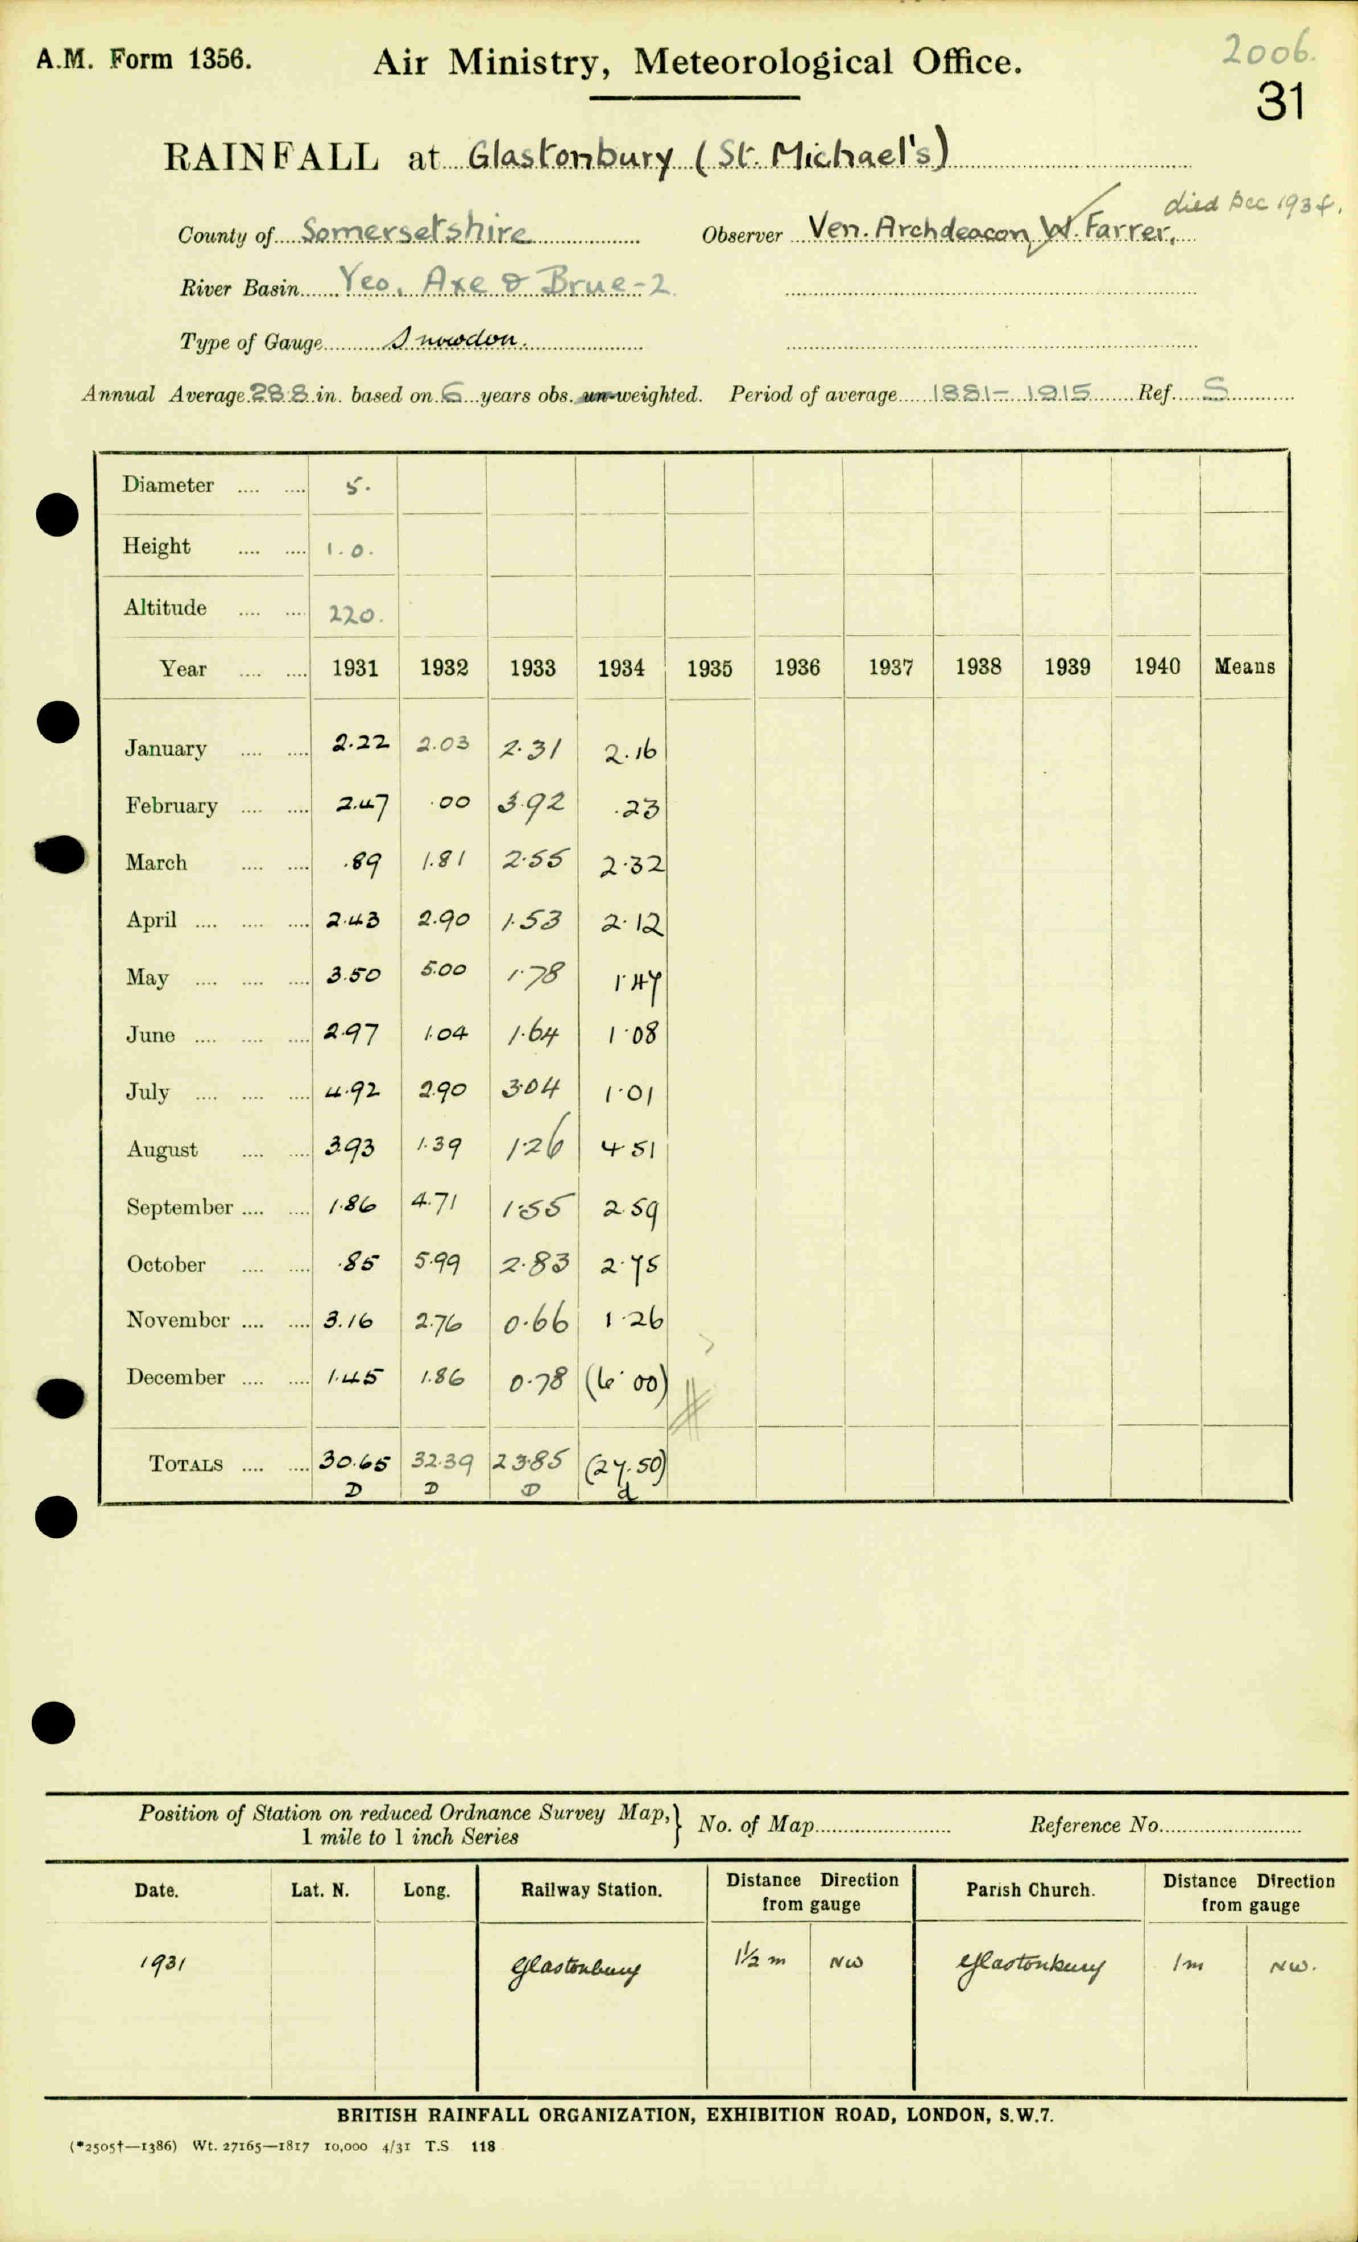 A.M. Form 1356. Air Ministry, Meteorological Office. 2006.
31
RAINFALL at Glastonbury (St. Michael's)
died Dec 1934.
County of Somersetshire Observer Ven. Archdeacon W. Farrer.
River Basin Yeo, Axe & Brue-2
Type of Gauge Snowdon.
Annual Average 28.8 in. based on 6 years obs. un-weighted. Period of average 1881-1915 Ref. S
Diameter .... .... 5.
Height .... .... 1.0.
Altitude .... .... 220.
Year .... .... 1931 1932 1933 1934 1935 1936 1937 1938 1939 1940 Means
January .... .... 2.22 2.03 2.31 2.16
February .... .... 2.47 .00 3.92 .23
March .... .... .89 1.81 2.55 2.32
April .... .... .... 2.43 2.90 1.53 2.12
May .... .... .... 3.50 5.00 1.78 1.47
June .... .... .... 2.97 1.04 1.64 1.08
July .... .... .... 4.92 2.90 3.04 1.01
August .... .... 3.93 1.39 1.26 4.51
September .... .... 1.86 4.71 1.55 2.59
October .... .... .85 5.99 2.83 2.75
November .... .... 3.16 2.76 0.66 1.26
December .... .... 1.45 1.86 0.78 (6.00)
TOTALS .... .... 30.65 32.39 23.85 (27.50)
D D D d
Position of Station on reduced Ordnance Survey Map,} No. of Map Reference No.
1 mile to 1 inch Series
Date. Lat. N. Long. Railway Station. Distance Direction from gauge Parish Church. Distance Direction from gauge
1931 Glastonbury 1½ m NW Glastonbury 1m NW.
BRITISH RAINFALL ORGANIZATION, EXHIBITION ROAD, LONDON, S.W.7.
(*2505†—1386) Wt. 27165—1817 10,000 4/31 T.S 118